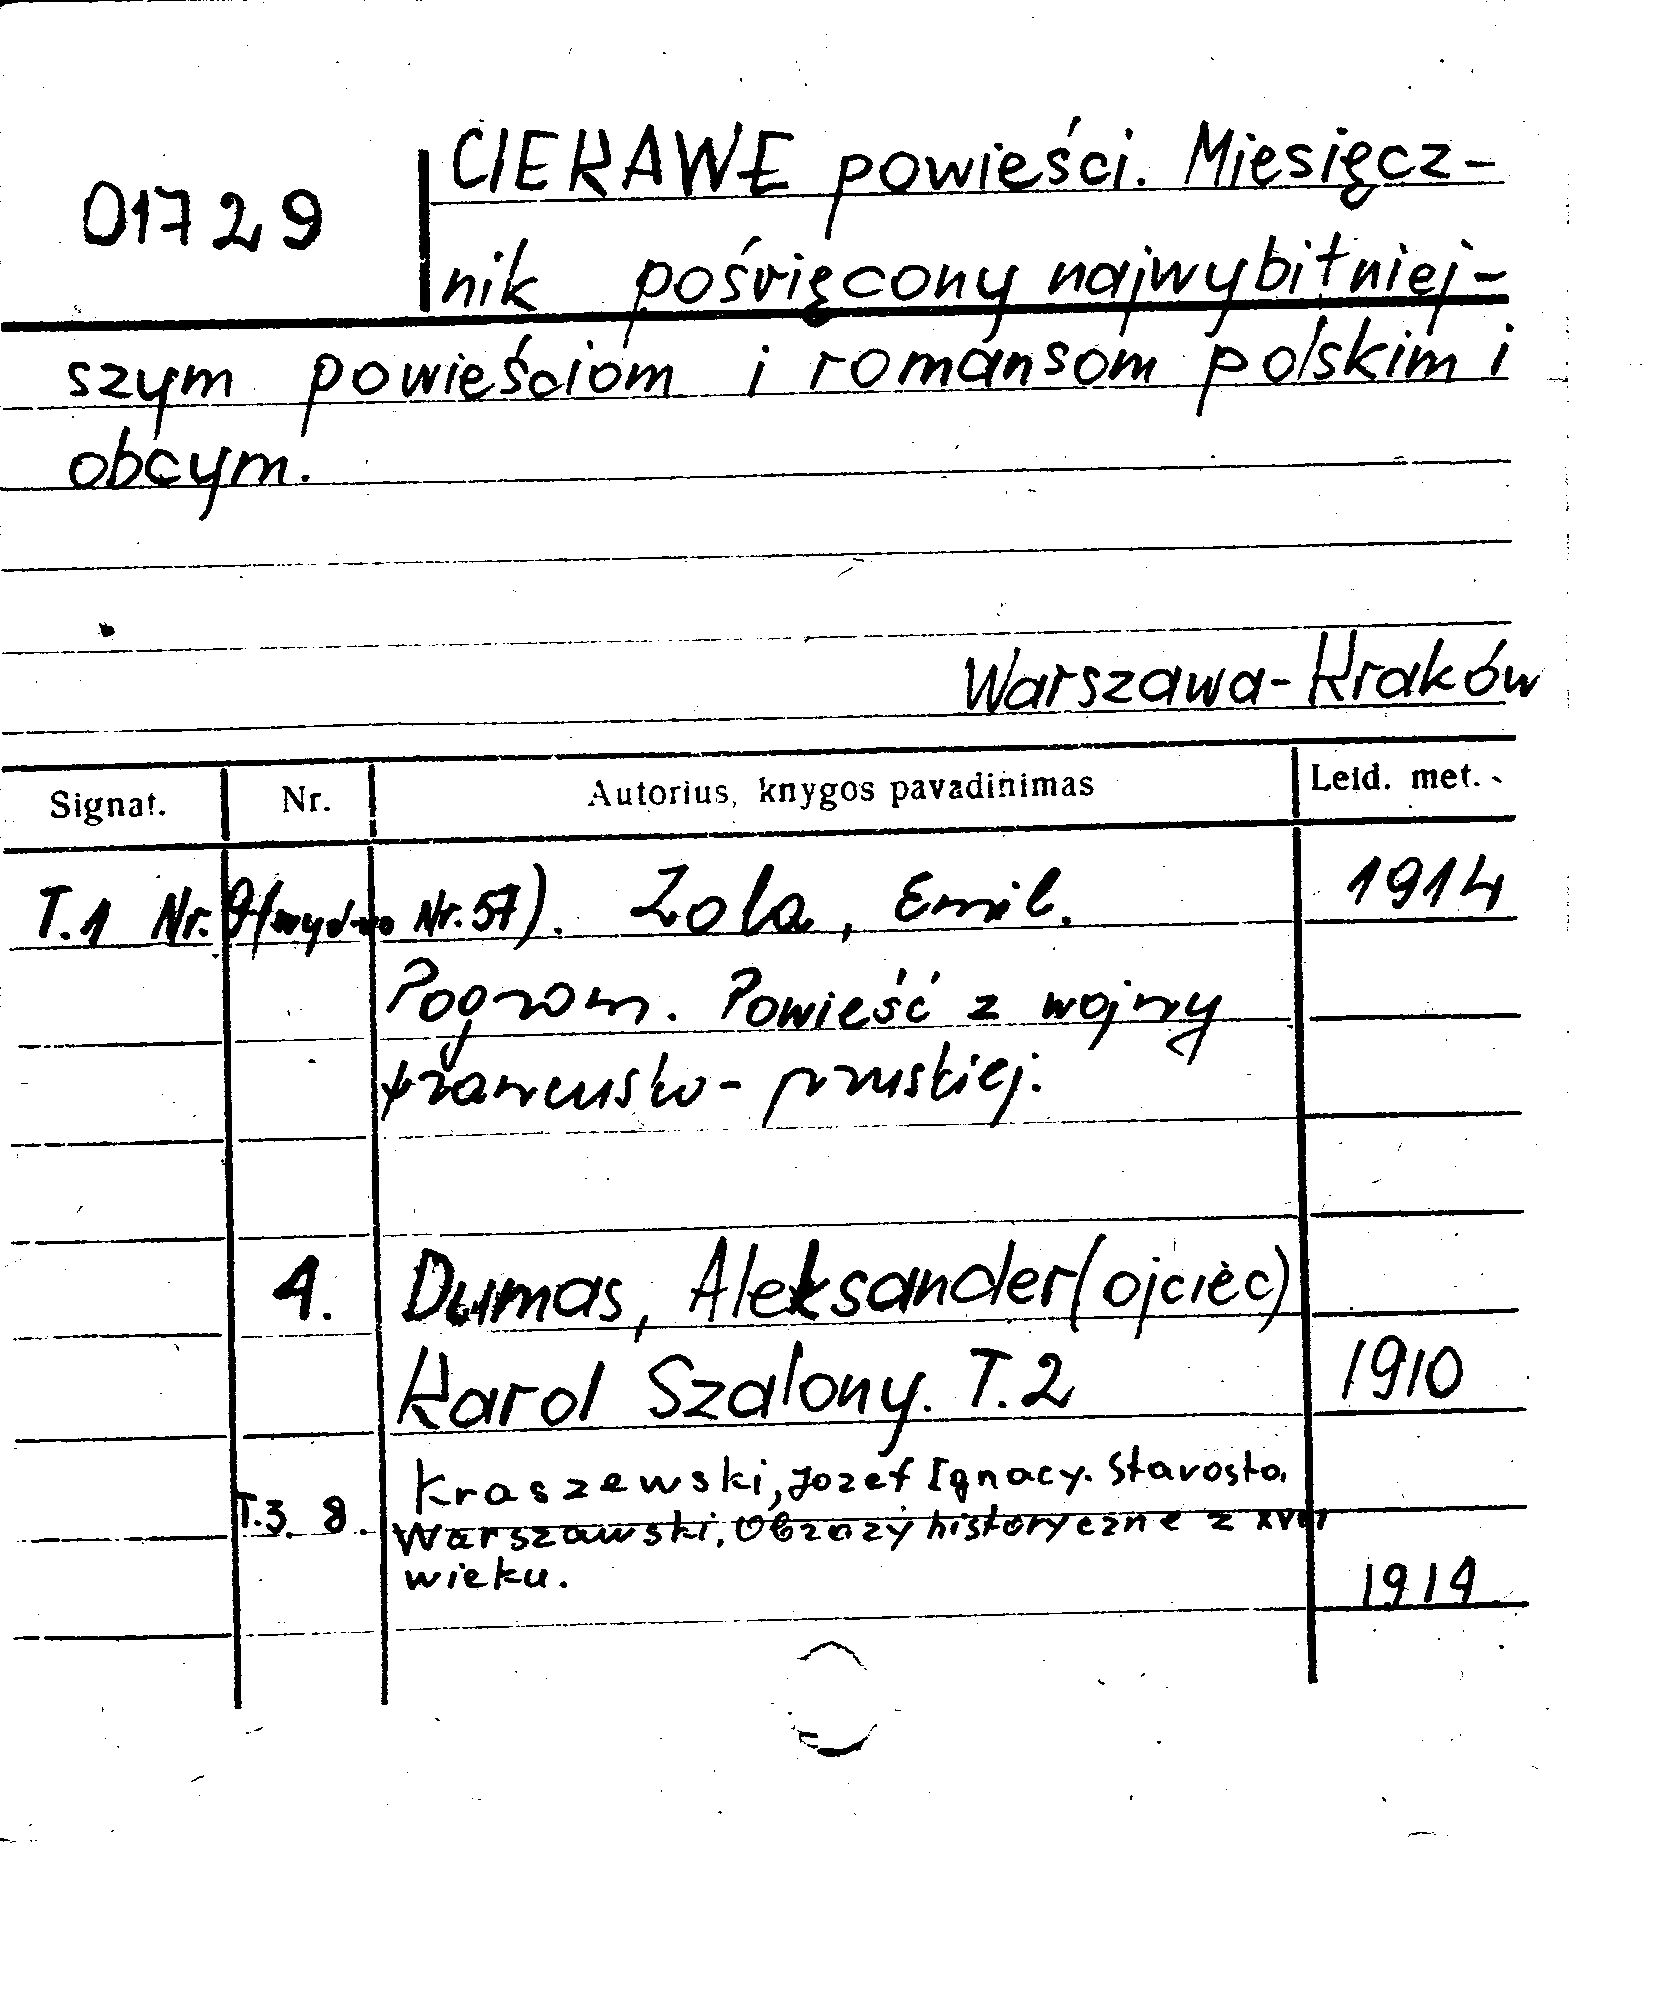 01729
CIEKAWE powieści. Miesięcz-
nik poświęcony najwybitniej-
szym powieściom i romansom polskim i
obcym.
Warszawa-Kraków
Signat. Nr. Autorius, knygos pavadinimas Leid. met.
T.1 Nr. 9/(wyd-wo Nr.57). Zola, Emil. 1914
Pogrom. Powieść z wojny
francusko-pruskiej.
4. Dumas, Aleksander (ojciec)
Karol Szalony. T.2 1910
Kraszewski, Jozef Ignacy. Starosta
T.3. 8. Warszawski. Obrazy historyczne z XVIII
wieku.
1914